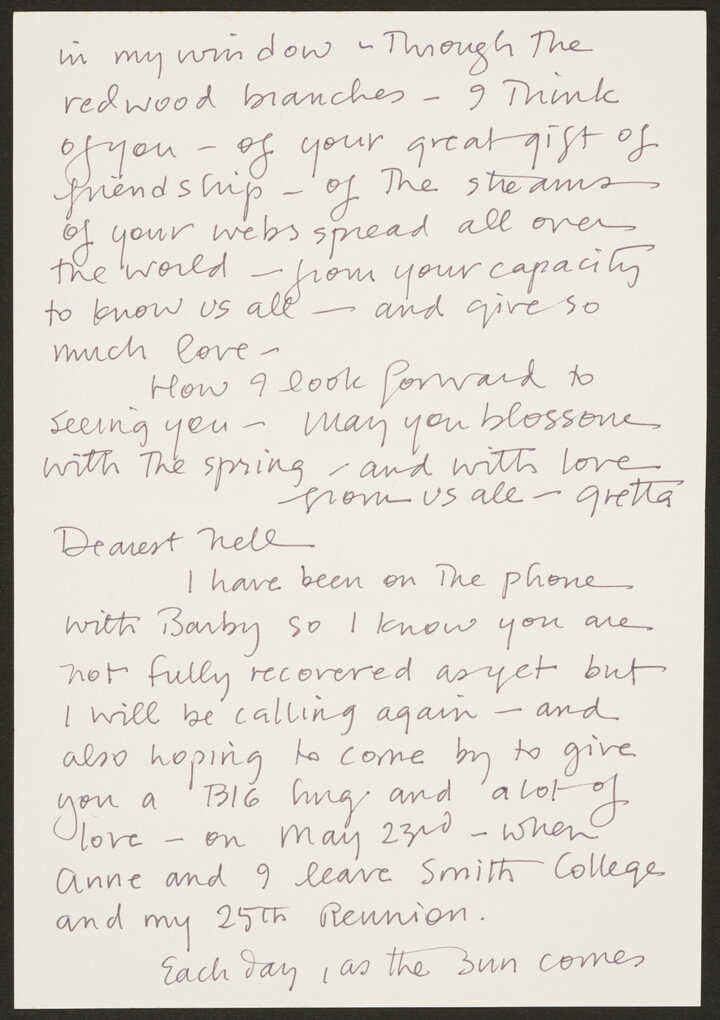 in my window – Through The
redwood branches – I Think
of you – of your great gift of
friendship – of The streams
of your webs spread all over
the world – from your capacity
to know us all – and give so
much love –
How I look forward to
seeing you – May you blossom
with The spring – and with love
from us all – Gretta
Dearest Nell
I have been on The phone
with Barby so I know you are
not fully recovered as yet but
I will be calling again – and
also hoping to come by to give
you a BIG hug and a lot of
love – on May 23rd – when
Anne and I leave Smith College
and my 25th Reunion.
Each day, as the sun comes